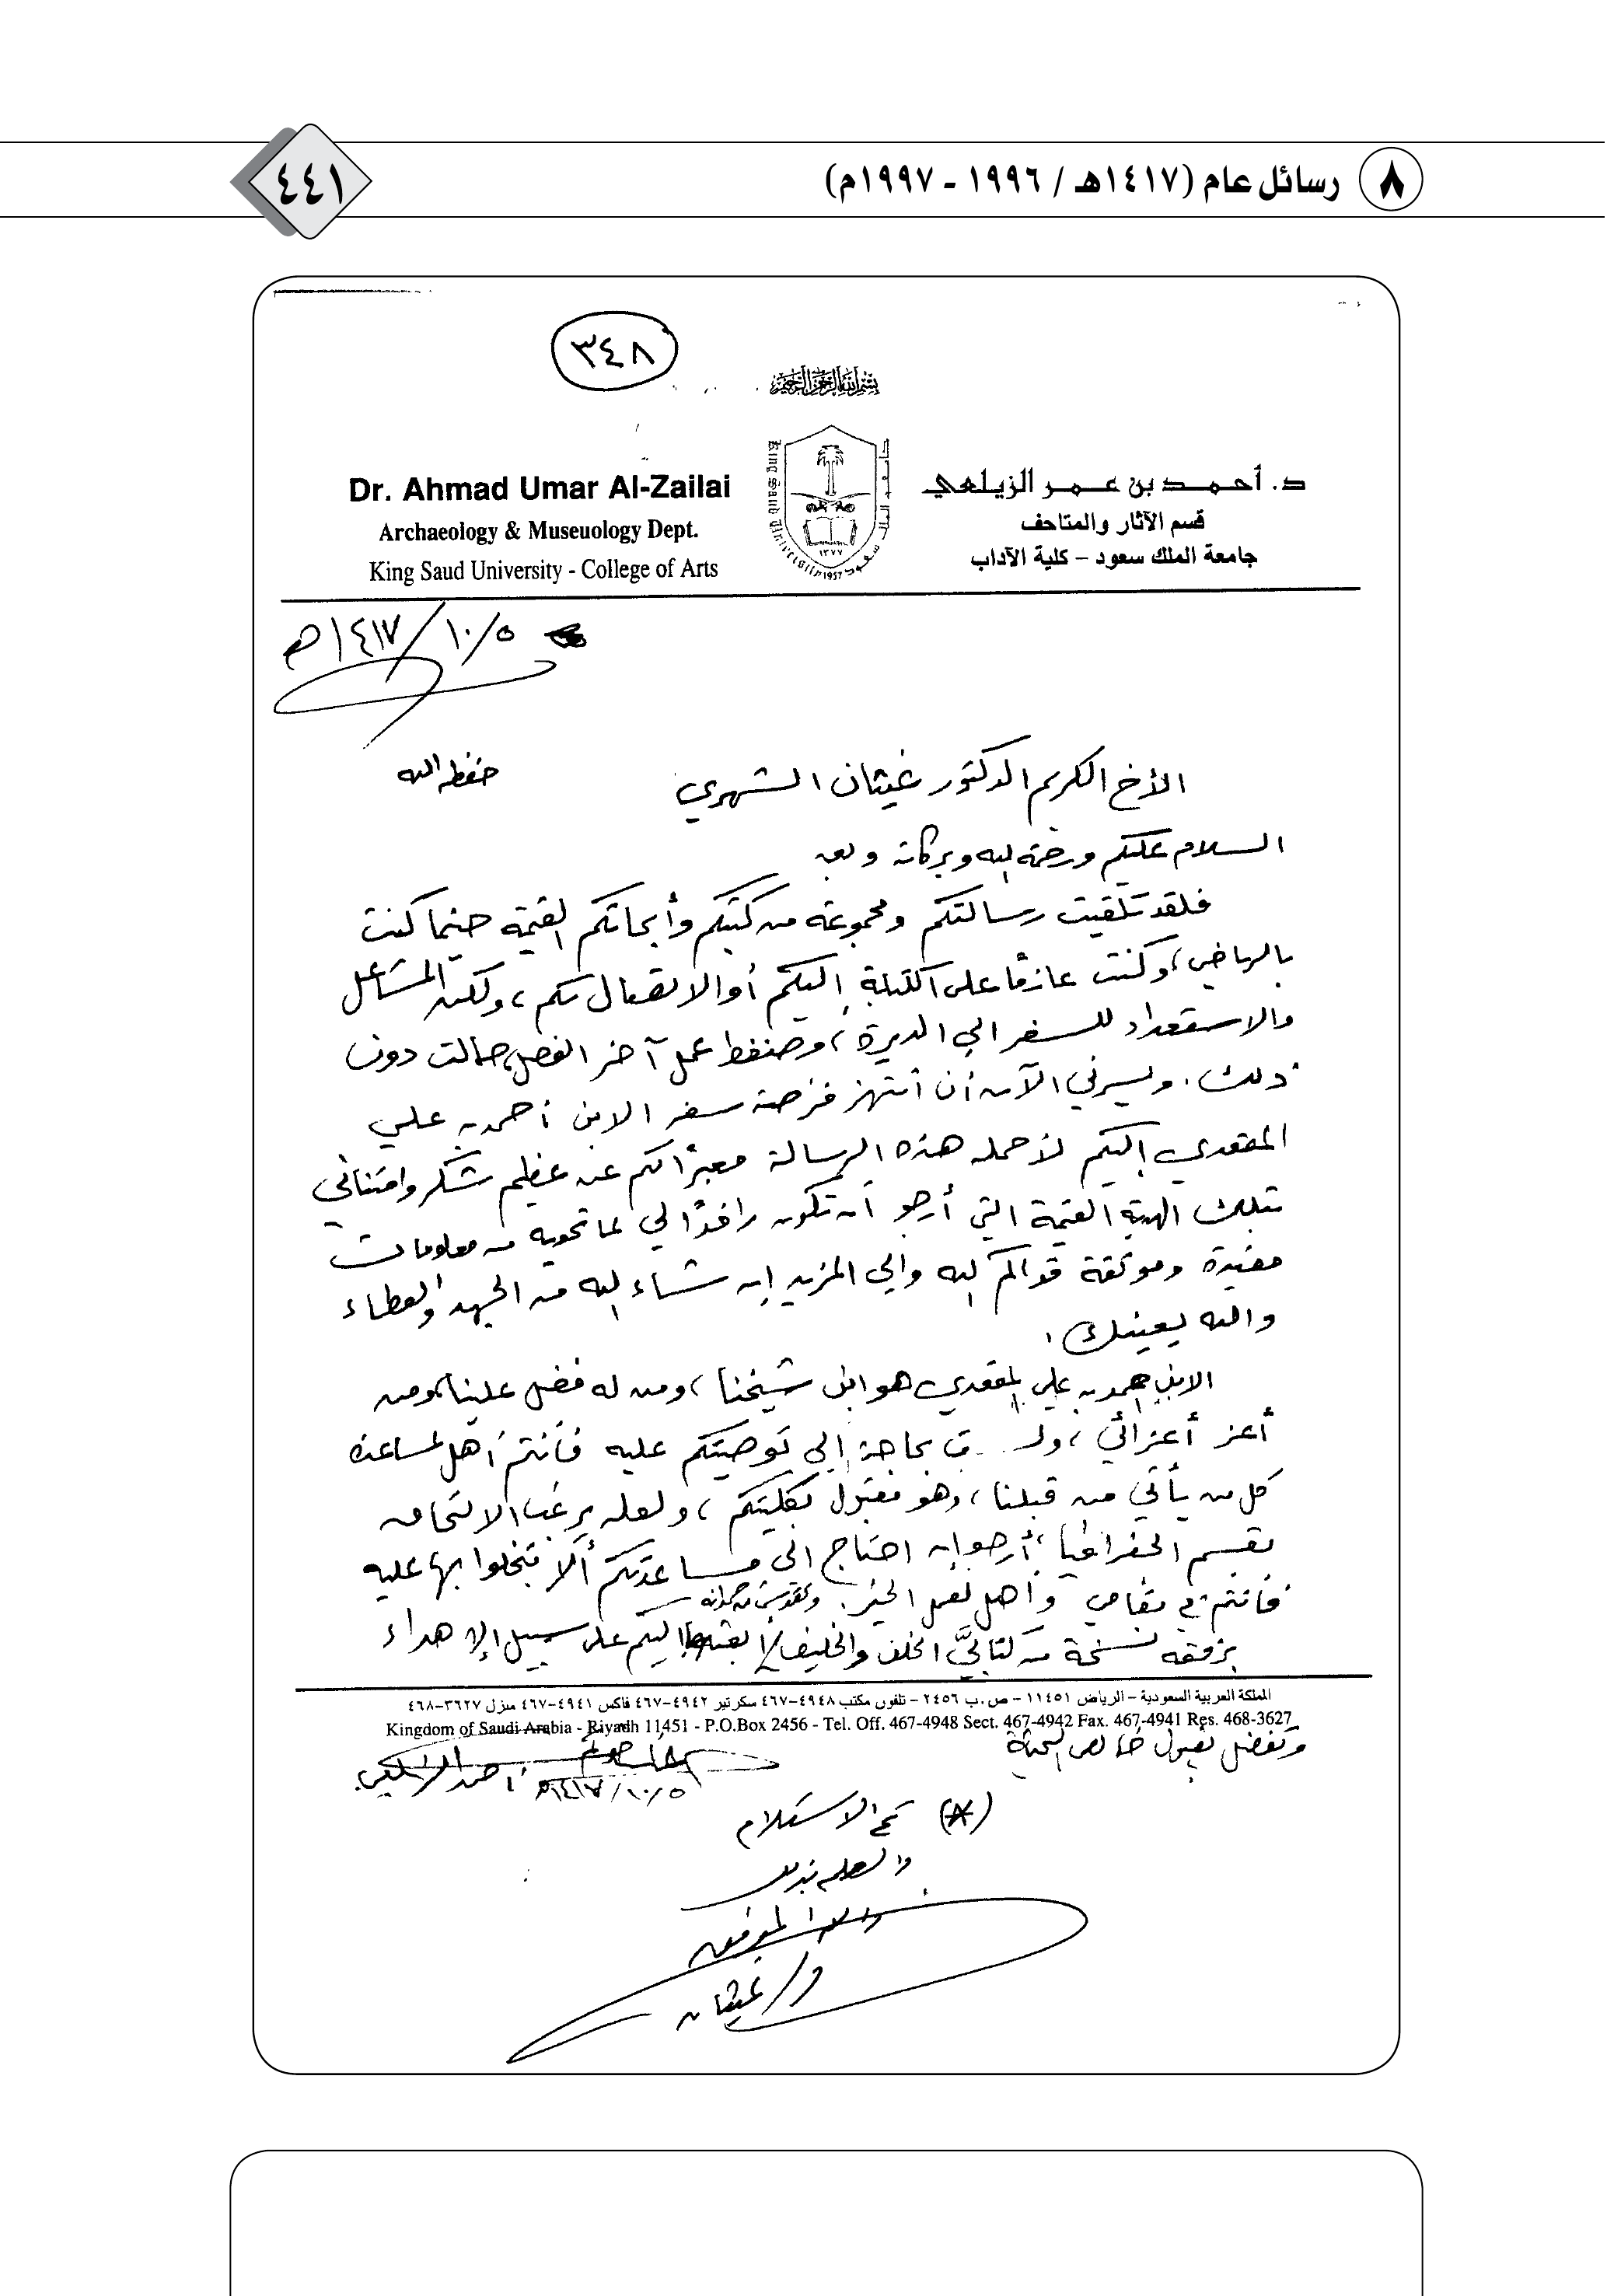 ٨ رسائل عام (١٤١٧هـ / ١٩٩٦ - ١٩٩٧م)
٤٤١
٣٤٨
بسم الله الرحمن الرحيم
د. أحمد بن عمر الزيلعي
قسم الآثار والمتاحف
جامعة الملك سعود - كلية الآداب
Dr. Ahmad Umar Al-Zailai
Archaeology & Museuology Dept.
King Saud University - College of Arts
King Saud University 1957
١٣٧٧
٥/١٠/١٤١٧هـ
الأخ الكريم الدكتور غيثان الشهري حفظه الله
السلام عليكم ورحمة الله وبركاته وبعد
فلقد تلقيت رسالتكم ومجموعة من كتبكم وأبحاثكم القيمة حينما كنت
بالرياض، وكنت عازمًا على الكتابة إليكم أو الاتصال بكم، ولكن المشاغل
والاستعداد للسفر إلى الديرة، وضغط عمل آخر الفصل، حالت دون
ذلك. ويسرني الآن أن أنتهز فرصة سفر الابن أحمد بن علي
المقعدي إليكم لأحمله هذه الرسالة معبرًا لكم عن عظيم شكر وامتناني
بتلك الهدية القيمة التي أرجو أن تكون رافدًا لي لما تحويه من معلومات
مفيدة وموثقة قواكم الله وإلى المزيد إن شاء الله من الجهد والعطاء
والله يعينك.
الابن أحمد بن علي المقعدي هو ابن شيخنا، ومن له فضل علينا، ومن
أعز أعزائي، بحاجة إلى توصيتكم عليه فأنتم أهل لمساعدة
كل من يأتي من قبلنا، وهو مقبول بكليتكم، ولعله يرغب الالتحاق
بقسم الجغرافيا، أرجو إن احتاج إلى مساعدتكم ألا تبخلوا بها عليه
فأنتم في مقامي وأهل لعمل الخير.
برفقه نسخة من كتابيَّ الخلف والخليف إليكم على سبيل الإهداء
المملكة العربية السعودية - الرياض ١١٤٥١ - ص.ب ٢٤٥٦ - تلفون مكتب ٤٩٤٨-٤٦٧ سكرتير ٤٩٤٢-٤٦٧ فاكس ٤٩٤١-٤٦٧ منزل ٣٦٢٧-٤٦٨
Kingdom of Saudi Arabia - Riyadh 11451 - P.O.Box 2456 - Tel. Off. 467-4948 Sect. 467-4942 Fax. 467-4941 Res. 468-3627
وتفضل بقبول خالص التحية
أحمد الزيلعي
٥/١٠/١٤١٧هـ
(*) تم الاستلام
والعلم بذلك
والله الموفق
د/ غيثان